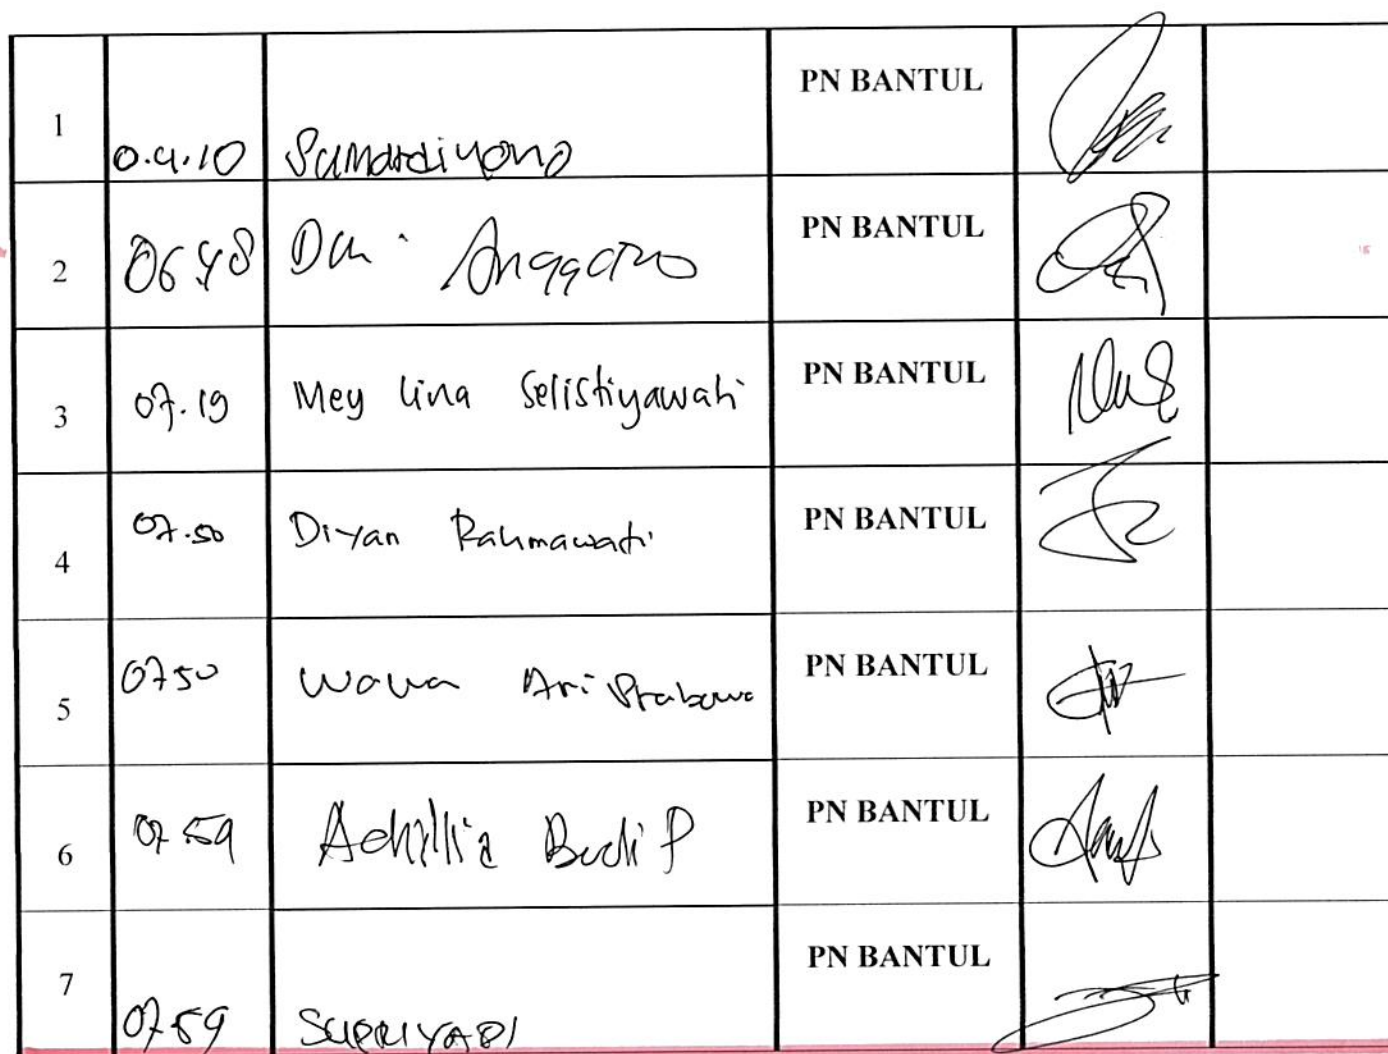 1 0.4.10 Sumardiyono PN BANTUL
2 0648 Anggoro PN BANTUL
3 07.19 Mey Lina Selistiyawati PN BANTUL
4 07.50 Diyan Rahmawati PN BANTUL
5 0750 Wawa Ari Prabowo PN BANTUL
6 07 59 Achillia Budi P PN BANTUL
7 0759 SUPRIYADI PN BANTUL